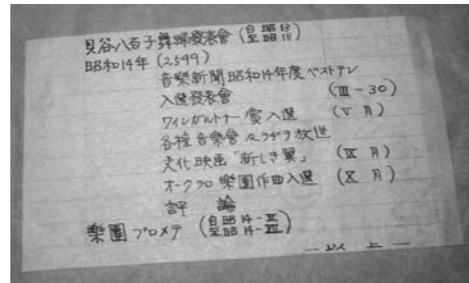 貝谷八百子舞踊發表會 (自昭13 至昭18)
昭和14年 (2599)
音樂新聞昭和14年度ベストテン
入選發表會 (III-30)
ワインガルトナー賞入選 (V月)
各種音樂會及ラヂヲ放送
文化映画「新しき翼」 (IX月)
オークラロ樂園作曲入選 (X月)
評論
樂團プロメテ (自昭14-II 至昭14-XII)